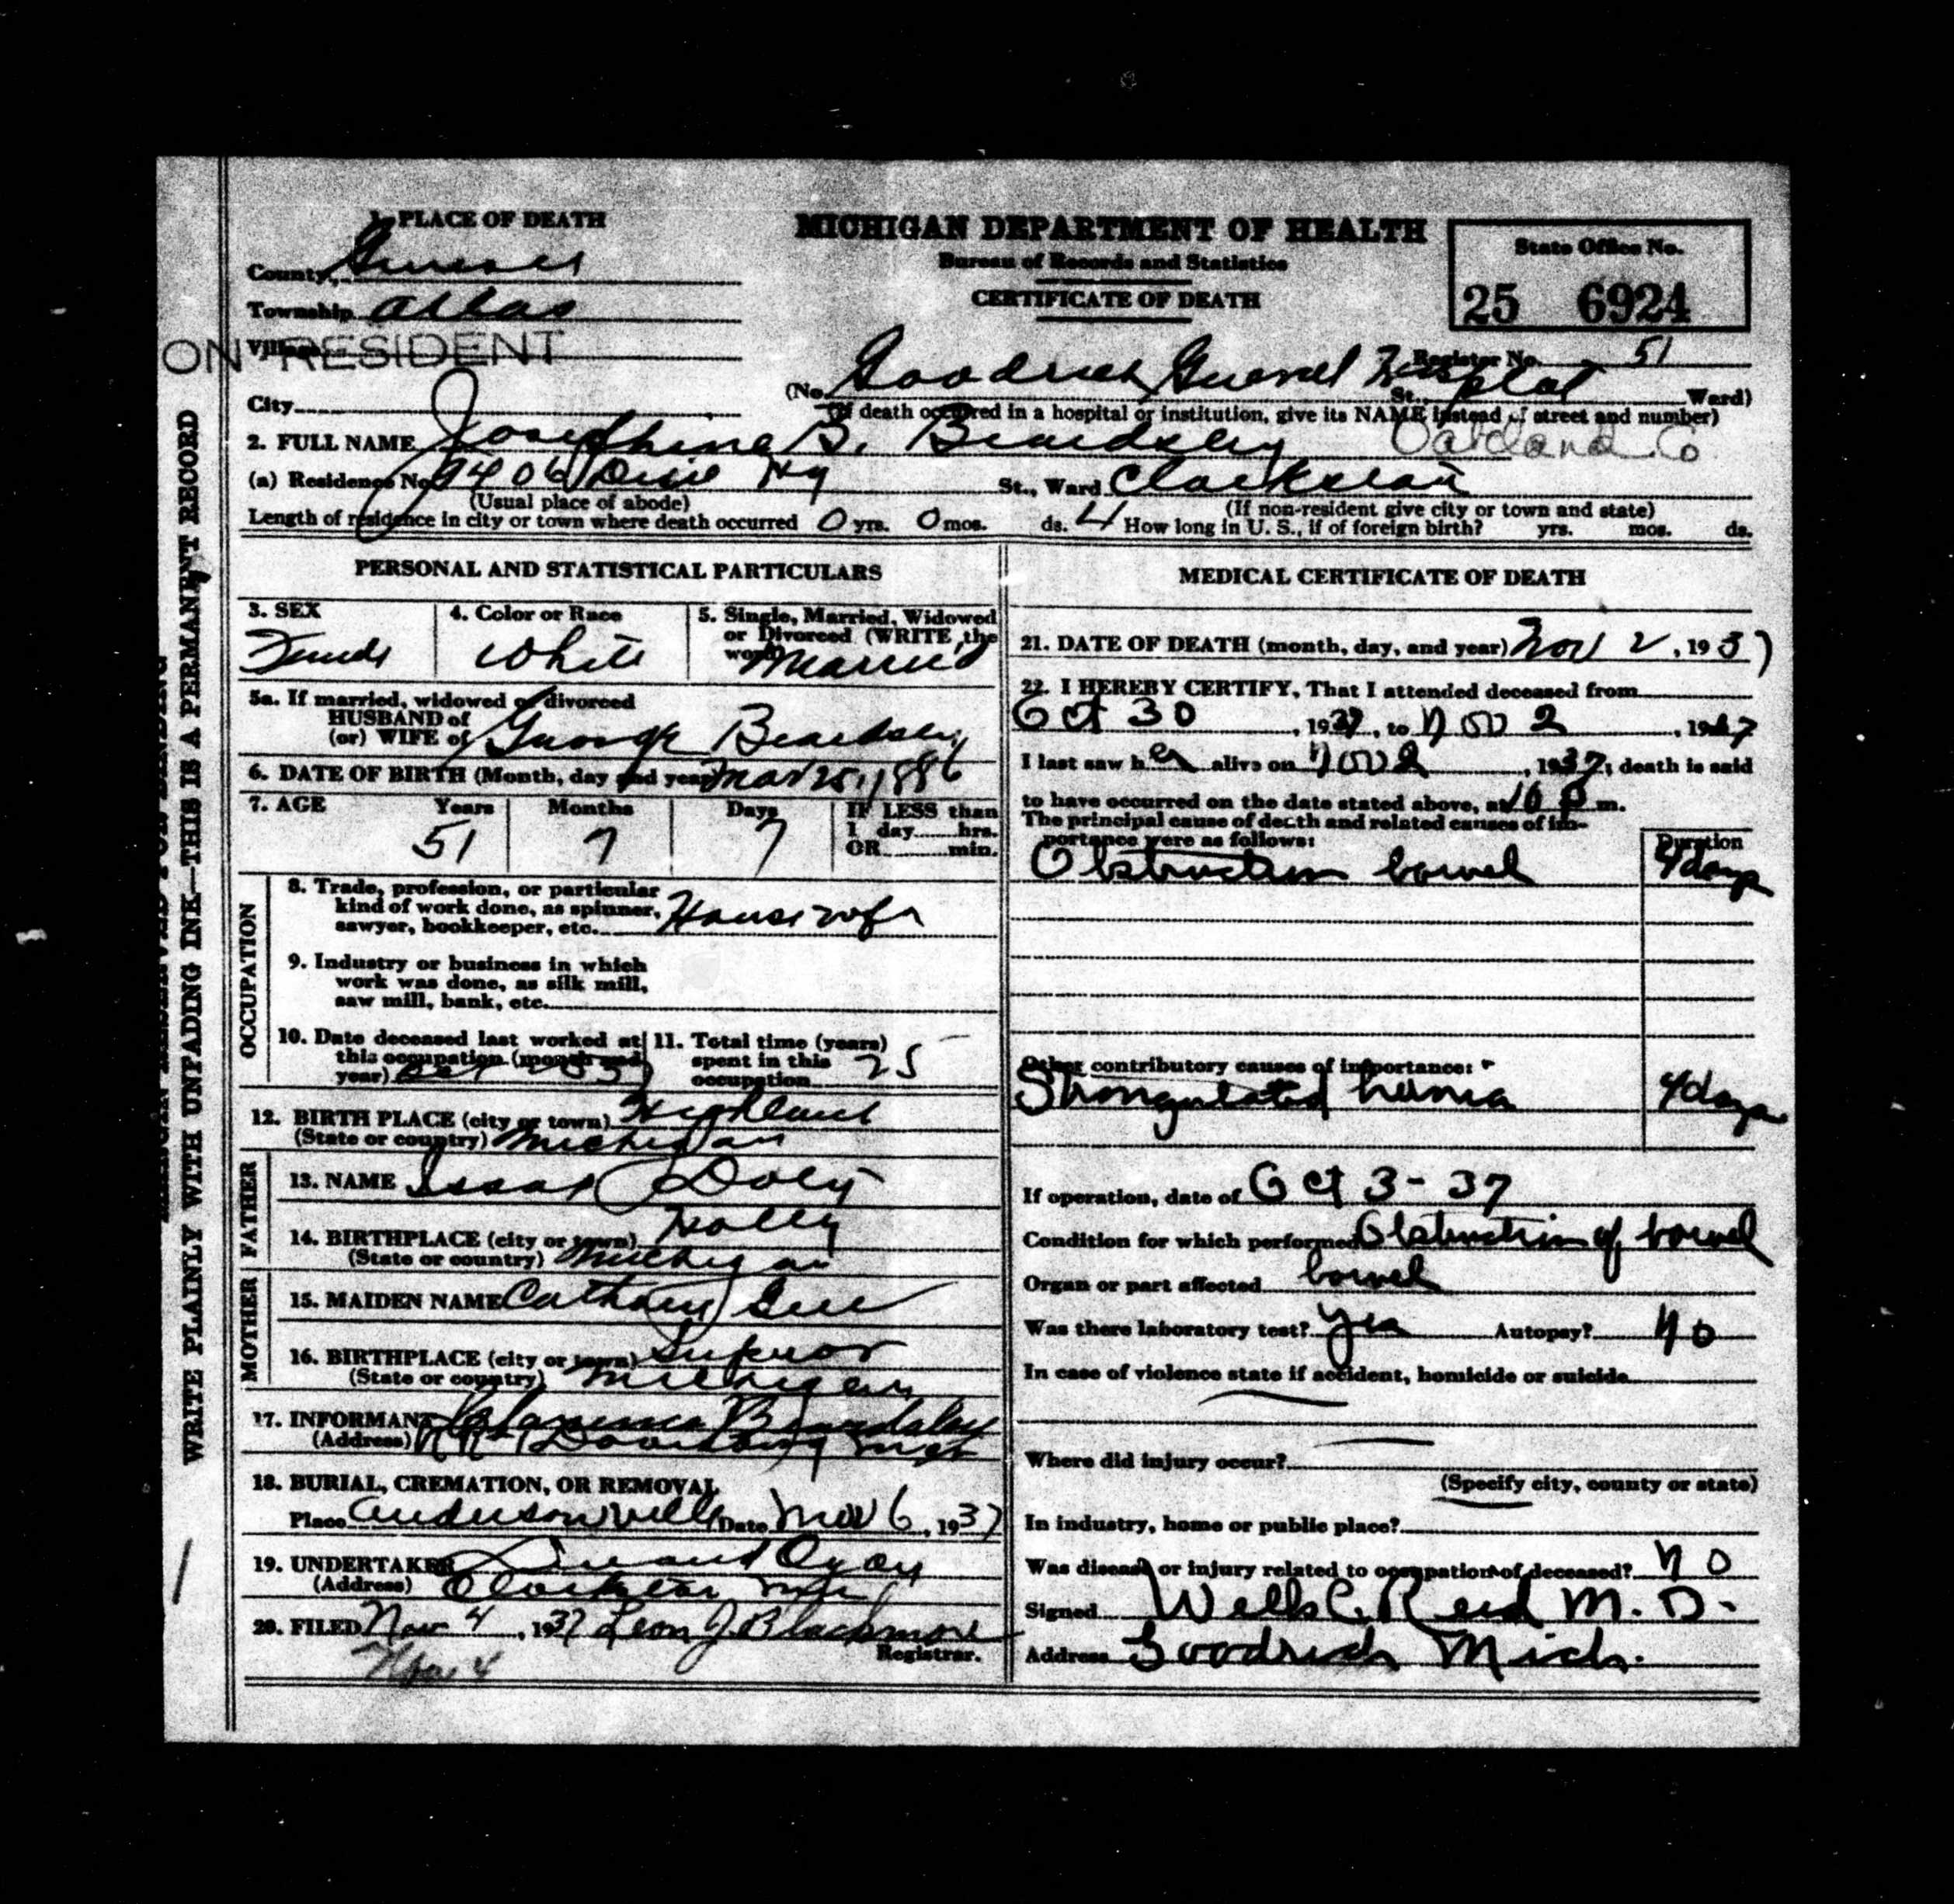 1. PLACE OF DEATH
County Genesee
Township Atlas
Village
NON RESIDENT
City
MICHIGAN DEPARTMENT OF HEALTH
Bureau of Records and Statistics
CERTIFICATE OF DEATH
State Office No.
25 6924
Register No. 51
(No. Goodrich General Hospital St., Ward)
(If death occurred in a hospital or institution, give its NAME instead of street and number)
2. FULL NAME Josephine B. Beardsley Oakland Co
(a) Residence No. 9406 Dixie Hy St., Ward Clarkston
(Usual place of abode) (If non-resident give city or town and state)
Length of residence in city or town where death occurred 0 yrs. 0 mos. ds. 4 How long in U. S., if of foreign birth? yrs. mos. ds.
PERSONAL AND STATISTICAL PARTICULARS
3. SEX
Female
4. Color or Race
White
5. Single, Married, Widowed
or Divorced (WRITE the
word)
Married
5a. If married, widowed or divorced
HUSBAND of
(or) WIFE of George Beardsley
6. DATE OF BIRTH (Month, day and year) Mar 25, 1886
7. AGE Years Months Days IF LESS than
1 day hrs.
OR min.
51 7 7
OCCUPATION
8. Trade, profession, or particular
kind of work done, as spinner,
sawyer, bookkeeper, etc. Housewife
9. Industry or business in which
work was done, as silk mill,
saw mill, bank, etc.
10. Date deceased last worked at
this occupation (month and
year) Oct 1937
11. Total time (years)
spent in this
occupation 25
12. BIRTH PLACE (city or town) Highland
(State or country) Michigan
FATHER
13. NAME Isaac Doty
14. BIRTHPLACE (city or town) Holly
(State or country) Michigan
MOTHER
15. MAIDEN NAME
16. BIRTHPLACE (city or town) Superior
(State or country) Michigan
17. INFORMANT Clarence Beardsley
(Address) Davisburg Mich
18. BURIAL, CREMATION, OR REMOVAL
Place Andersonville Date Nov 6, 1937
19. UNDERTAKER
(Address) Clarkston Mich
20. FILED Nov 4, 1937 Leon J. Blackmore
Registrar.
Nov 4
MEDICAL CERTIFICATE OF DEATH
21. DATE OF DEATH (month, day, and year) Nov 2, 1937
22. I HEREBY CERTIFY, That I attended deceased from
Oct 30, 1937, to Nov 2, 1937
I last saw her alive on Nov 2, 1937; death is said
to have occurred on the date stated above, at 10 P m.
The principal cause of death and related causes of im-
portance were as follows:
Duration
Obstruction bowel 4 days
Other contributory causes of importance:
Strangulated hernia 4 days
If operation, date of Oct 3-37
Condition for which performed Obstruction of bowel
Organ or part affected bowel
Was there laboratory test? Yes Autopsy? No
In case of violence state if accident, homicide or suicide
Where did injury occur?
(Specify city, county or state)
In industry, home or public place?
Was disease or injury related to occupation of deceased? No
Signed Wells C. Reid M. D.
Address Goodrich Mich.
WRITE PLAINLY WITH UNFADING INK—THIS IS A PERMANENT RECORD
MARGIN RESERVED FOR BINDING